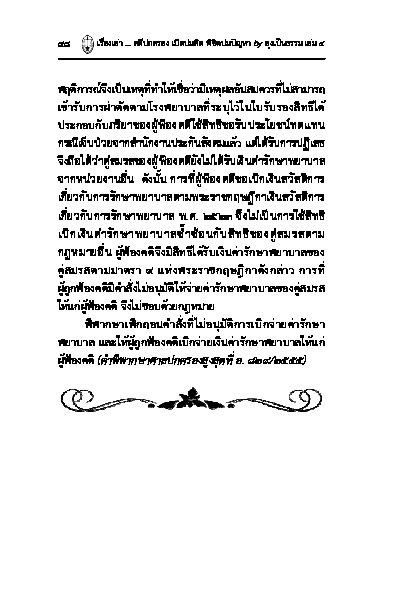 ๔๘ เรื่องเล่า ... คดีปกครอง เปิดปมคิด พิชิตปมปัญหา by ลุงเป็นธรรม เล่ม ๔
พฤติการณ์จึงเป็นเหตุที่ทำให้เชื่อว่ามีเหตุผลอันสมควรที่ไม่สามารถ
เข้ารับการผ่าตัดตามโรงพยาบาลที่ระบุไว้ในใบรับรองสิทธิได้
ประกอบกับภริยาของผู้ฟ้องคดีใช้สิทธิขอรับประโยชน์ทดแทน
กรณีเจ็บป่วยจากสำนักงานประกันสังคมแล้ว แต่ได้รับการปฏิเสธ
จึงถือได้ว่าคู่สมรสของผู้ฟ้องคดียังไม่ได้รับเงินค่ารักษาพยาบาล
จากหน่วยงานอื่น ดังนั้น การที่ผู้ฟ้องคดีขอเบิกเงินสวัสดิการ
เกี่ยวกับการรักษาพยาบาลตามพระราชกฤษฎีกาเงินสวัสดิการ
เกี่ยวกับการรักษาพยาบาล พ.ศ. ๒๕๒๓ จึงไม่เป็นการใช้สิทธิ
เบิกเงินค่ารักษาพยาบาลซ้ำซ้อนกับสิทธิของคู่สมรสตาม
กฎหมายอื่น ผู้ฟ้องคดีจึงมีสิทธิได้รับเงินค่ารักษาพยาบาลของ
คู่สมรสตามมาตรา ๙ แห่งพระราชกฤษฎีกาดังกล่าว การที่
ผู้ถูกฟ้องคดีมีคำสั่งไม่อนุมัติให้จ่ายค่ารักษาพยาบาลของคู่สมรส
ให้แก่ผู้ฟ้องคดี จึงไม่ชอบด้วยกฎหมาย
พิพากษาเพิกถอนคำสั่งที่ไม่อนุมัติการเบิกจ่ายค่ารักษา
พยาบาล และให้ผู้ถูกฟ้องคดีเบิกจ่ายเงินค่ารักษาพยาบาลให้แก่
ผู้ฟ้องคดี (คำพิพากษาศาลปกครองสูงสุดที่ อ. ๘๒๙/๒๕๕๕)